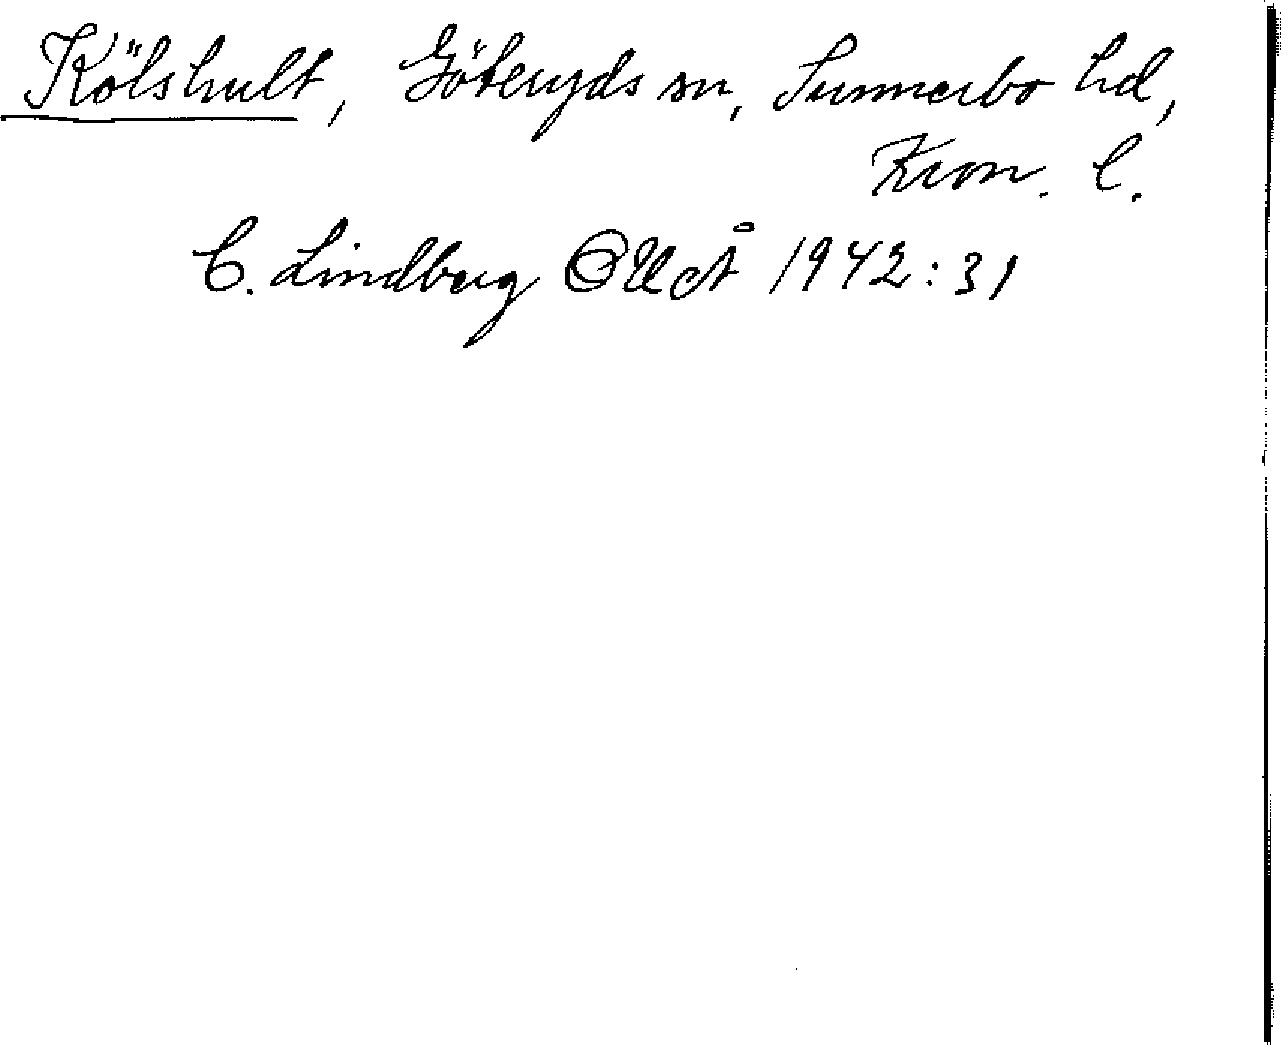 Kölshult, Göteryds sn, Sunnerbo hd,
Kron. l.
C. Lindberg OUÅ 1942:31